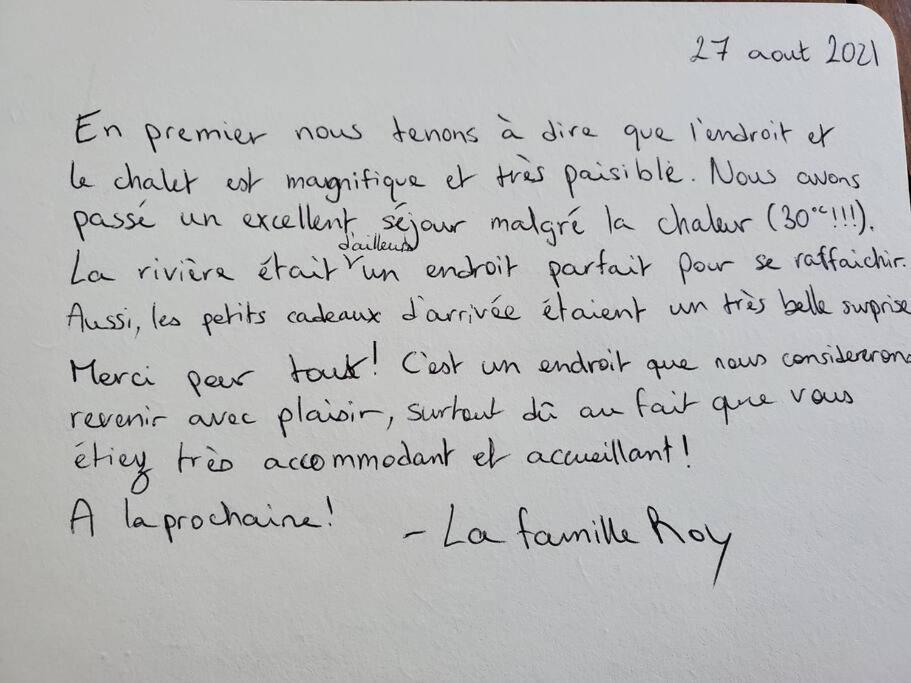 27 aout 2021
En premier nous tenons à dire que l'endroit et
le chalet est magnifique et très paisible. Nous avons
passé un excellent séjour malgré la chaleur (30°c!!!).
La rivière était d'ailleurs un endroit parfait pour se raffaichir.
Aussi, les petits cadeaux d'arrivée étaient un très belle surprise
Merci pour tout! C'est un endroit que nous considererons
revenir avec plaisir, surtout dû au fait que vous
étiez très accommodant et accueillant!
A la prochaine!
- La famille Roy